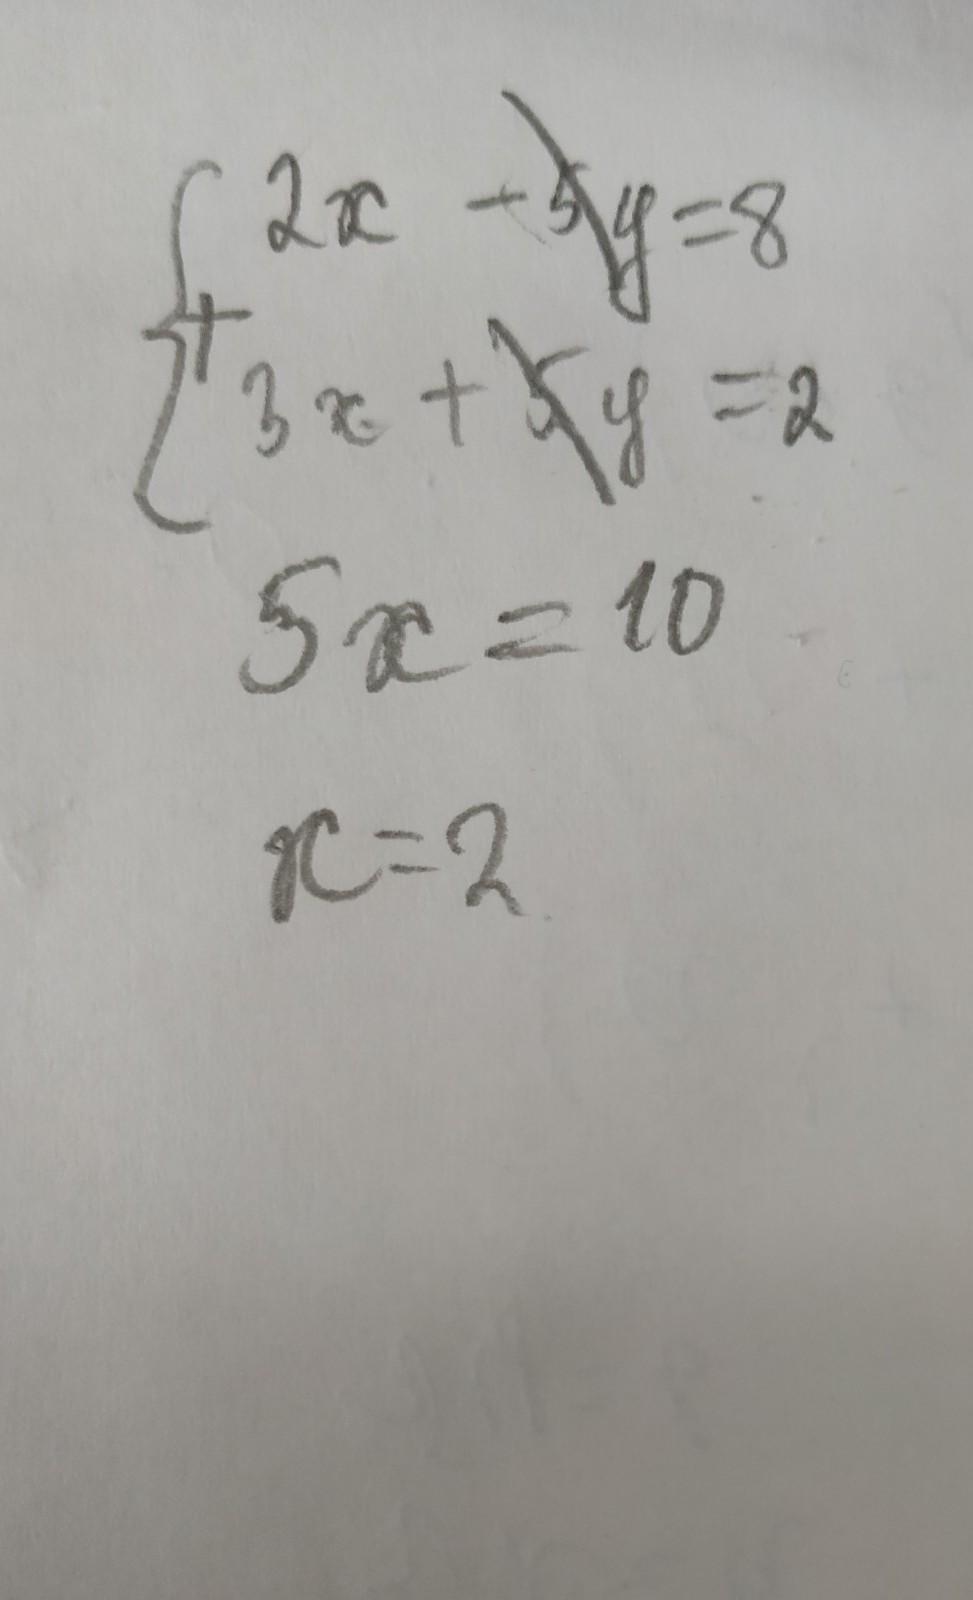 2x - 5y = 8
+
3x + 5y = 2
5x = 10
x = 2